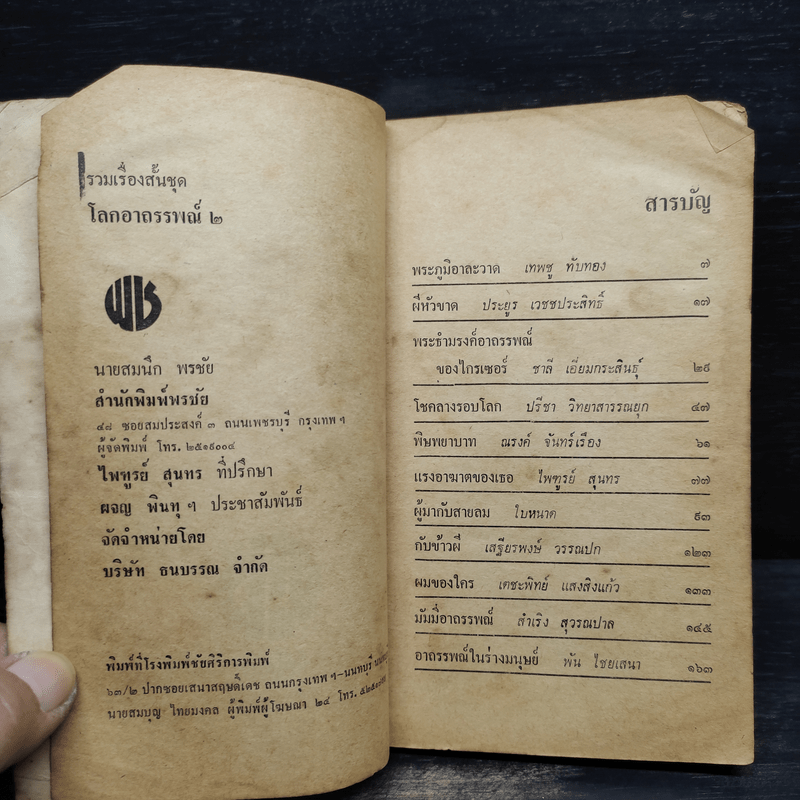 รวมเรื่องสั้นชุด
โลกอาถรรพณ์ ๒
พช
นายสมนึก พรชัย
สำนักพิมพ์พรชัย
๔๘ ซอยสมประสงค์ ๓ ถนนเพชรบุรี กรุงเทพ ฯ
ผู้จัดพิมพ์ โทร. ๒๕๑๙๐๐๔
ไพฑูรย์ สุนทร ที่ปรึกษา
ผจญ พินทุ ฯ ประชาสัมพันธ์
จัดจำหน่ายโดย
บริษัท ธนบรรณ จำกัด
พิมพ์ที่โรงพิมพ์ชัยศิริการพิมพ์
๖๓/๒ ปากซอยเสนาสฤษดิ์เดช ถนนกรุงเทพ ฯ-นนทบุรี
นายสมบุญ ไทยมงคล ผู้พิมพ์ผู้โฆษณา ๒๔ โทร.
สารบัญ
พระภูมิอาละวาด เทพชู ทับทอง ๗
ผีหัวขาด ประยูร เวชชประสิทธิ์ ๑๗
พระธำมรงค์อาถรรพณ์
ของไกรเซอร์ ชาลี เอี่ยมกระสินธุ์ ๒๙
โชคลางรอบโลก ปรีชา วิทยาสารรณยุก ๔๗
พิษพยาบาท ณรงค์ จันทร์เรือง ๖๑
แรงอาฆาตของเธอ ไพฑูรย์ สุนทร ๗๗
ผู้มากับสายลม ใบหนาด ๙๓
กับข้าวผี เสฐียรพงษ์ วรรณปก ๑๒๓
ผมของใคร เตชะพิทย์ แสงสิงแก้ว ๑๓๓
มัมมี่อาถรรพณ์ สำเริง สุวรณปาล ๑๔๕
อาถรรพณ์ในร่างมนุษย์ พัน ไชยเสนา ๑๖๓